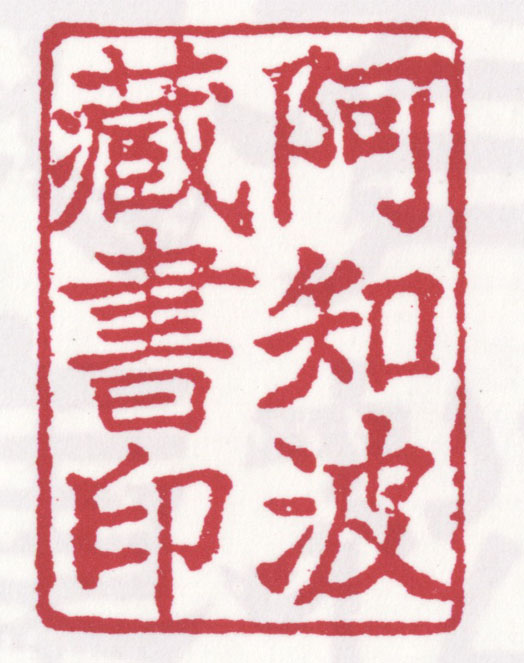 阿知波
藏書印